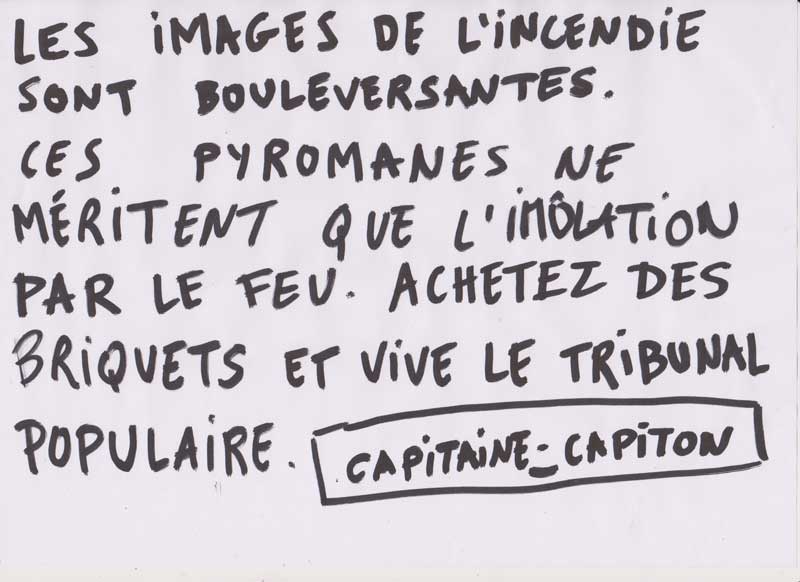 LES IMAGES DE L'INCENDIE
SONT BOULEVERSANTES.
CES PYROMANES NE
MÉRITENT QUE L'IMÔLATION
PAR LE FEU. ACHETEZ DES
BRIQUETS ET VIVE LE TRIBUNAL
POPULAIRE. CAPITAINE_CAPITON